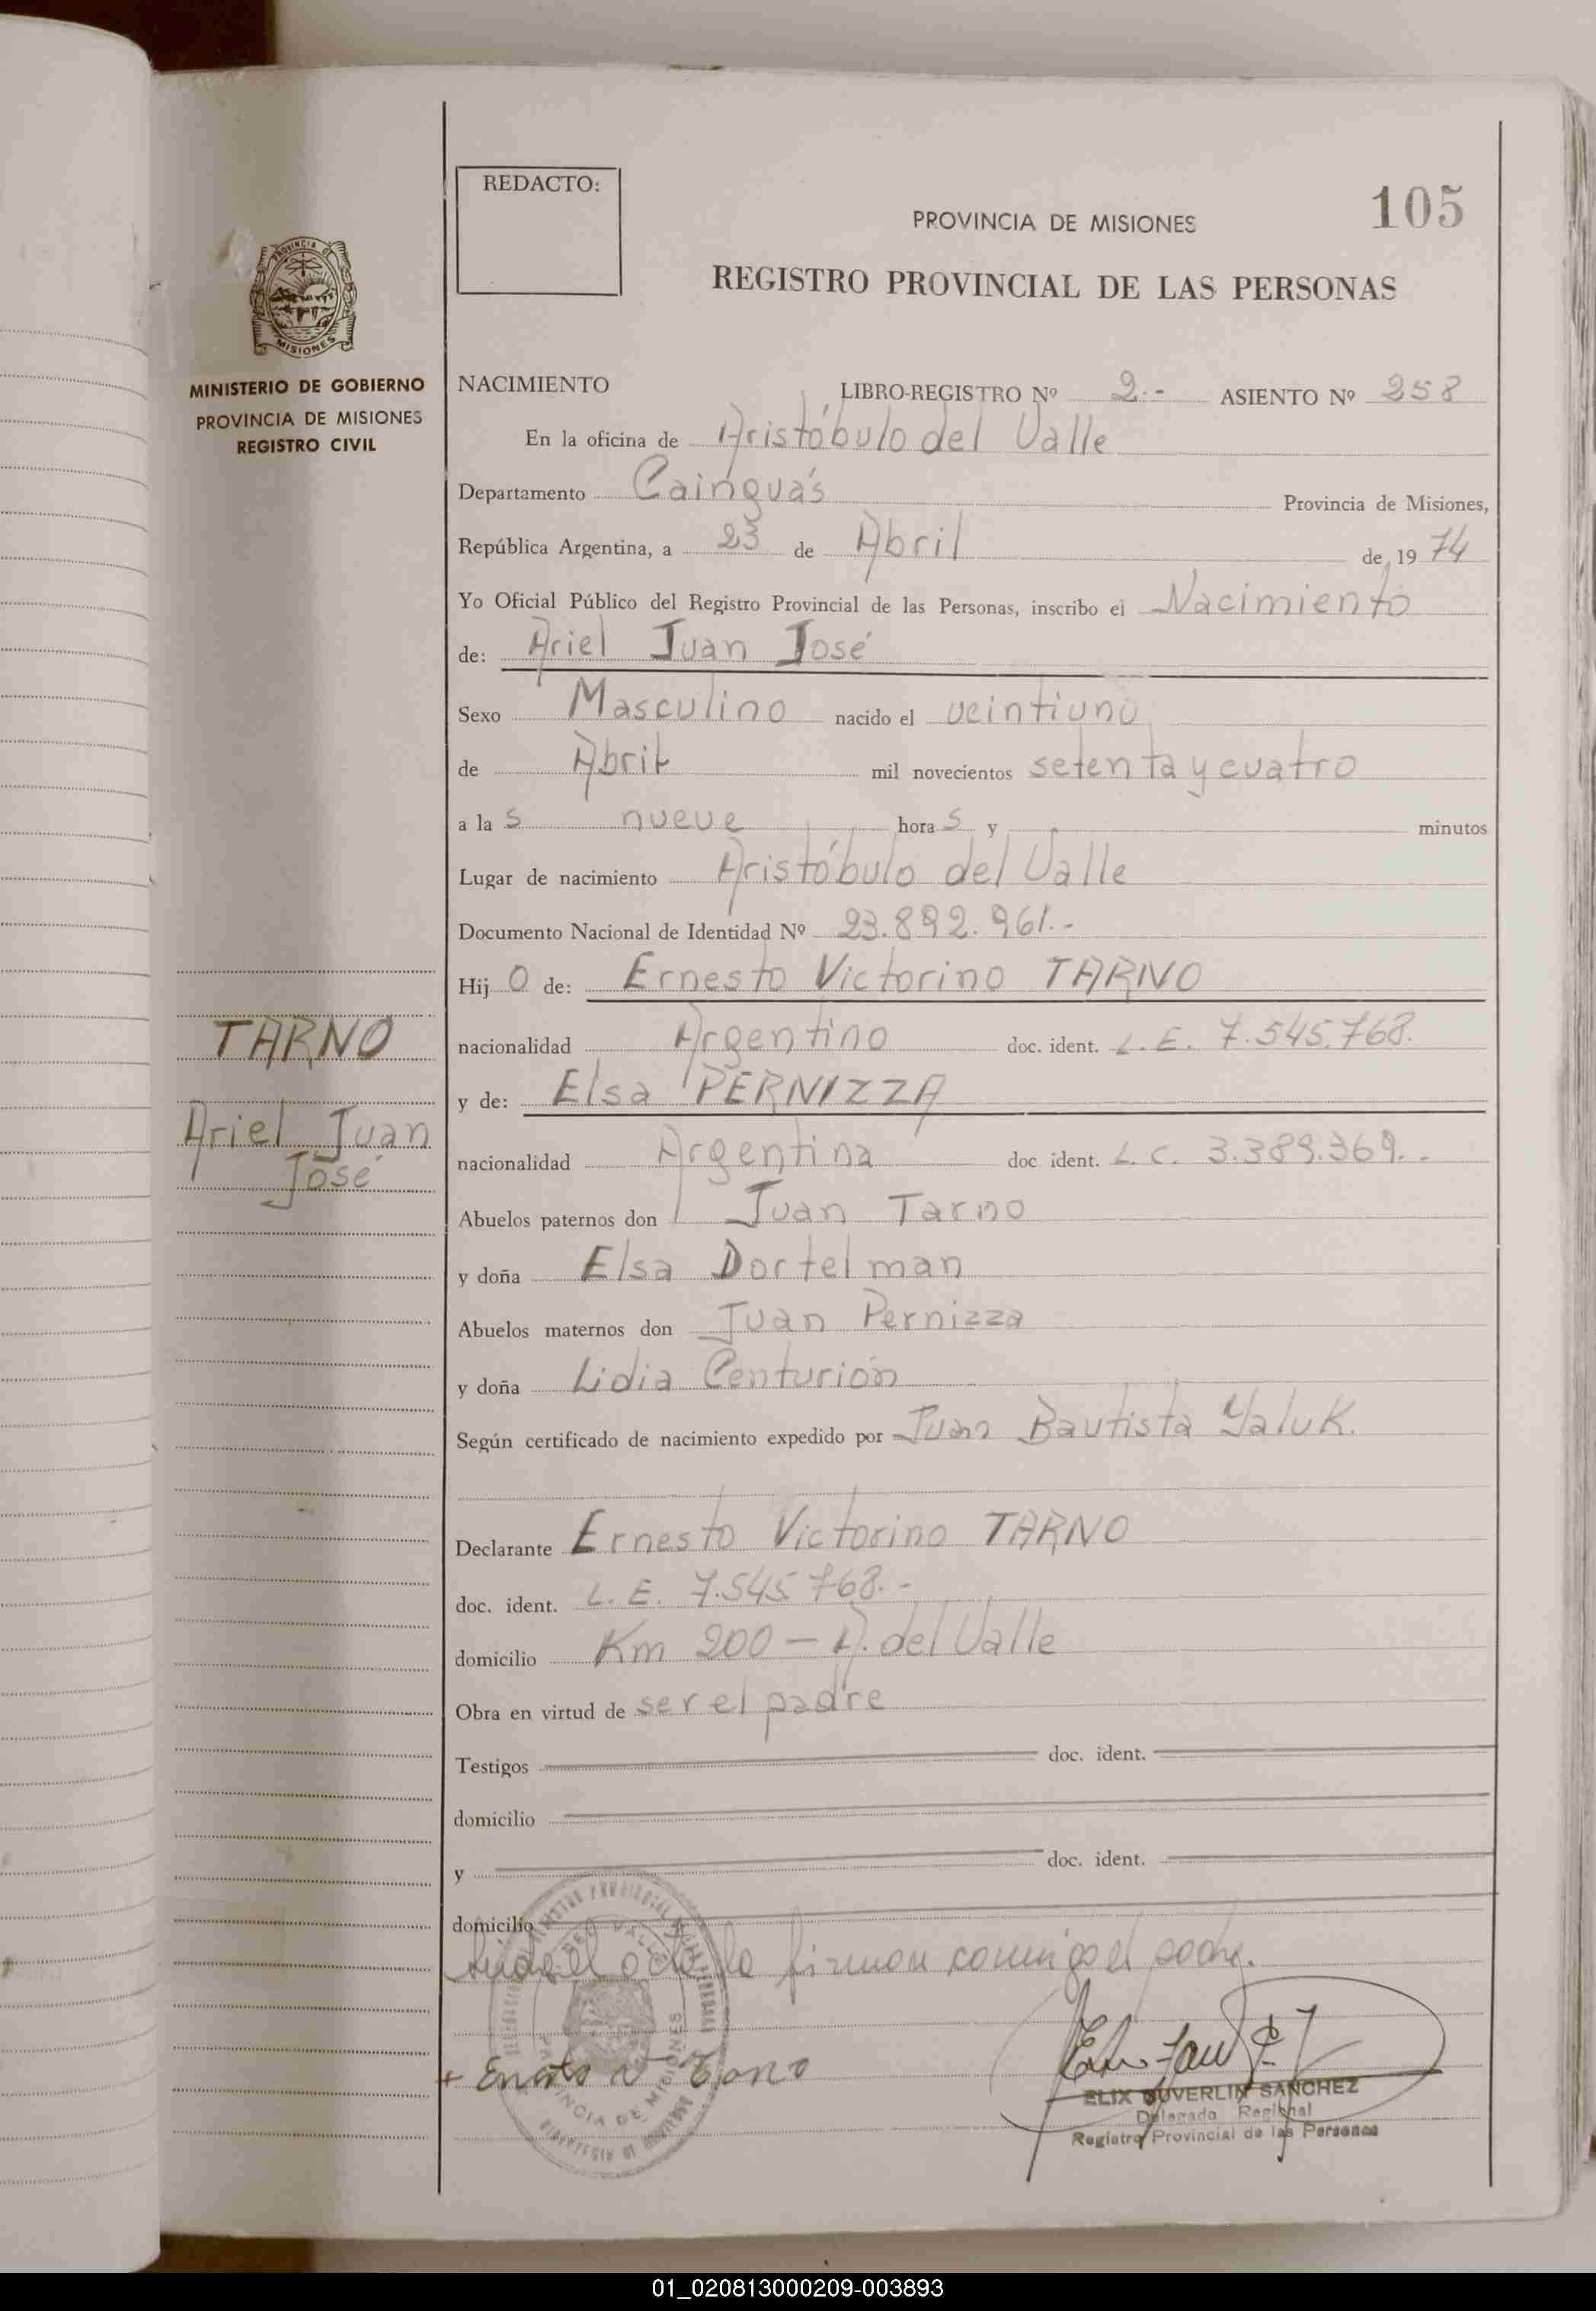 REDACTO:
105
PROVINCIA DE MISIONES
REGISTRO PROVINCIAL DE LAS PERSONAS
PROVINCIA DE
MISIONES
MINISTERIO DE GOBIERNO
PROVINCIA DE MISIONES
REGISTRO CIVIL
NACIMIENTO LIBRO-REGISTRO Nº 2.- ASIENTO Nº 258
En la oficina de Aristóbulo del Valle
Departamento Cainguás Provincia de Misiones,
República Argentina, a 23 de Abril de 1974
Yo Oficial Público del Registro Provincial de las Personas, inscribo el Nacimiento
de: Ariel Juan José
Sexo Masculino nacido el veintiuno
de Abril mil novecientos setenta y cuatro
a las nueve horas y minutos
Lugar de nacimiento Aristóbulo del Valle
Documento Nacional de Identidad Nº 23.892.961.-
Hijo de: Ernesto Victorino TARNO
nacionalidad Argentino doc. ident. L.E. 7.545.768.
y de: Elsa PERNIZZA
nacionalidad Argentina doc. ident. L.C. 3.389.369.-
TARNO
Ariel Juan
José
Abuelos paternos don Juan Tarno
y doña Elsa Dortelman
Abuelos maternos don Juan Pernizza
y doña Lidia Centurión
Según certificado de nacimiento expedido por Juan Bautista Yaluk.
Declarante Ernesto Victorino TARNO
doc. ident. L.E. 7.545.768.-
domicilio Km 200 - A. del Valle
Obra en virtud de ser el padre
Testigos doc. ident.
domicilio
y doc. ident.
domicilio
el firman conmigo el
ELIX SUVERLIN SANCHEZ
Delegado Regional
Registro Provincial de las Personas
01_020813000209-003893